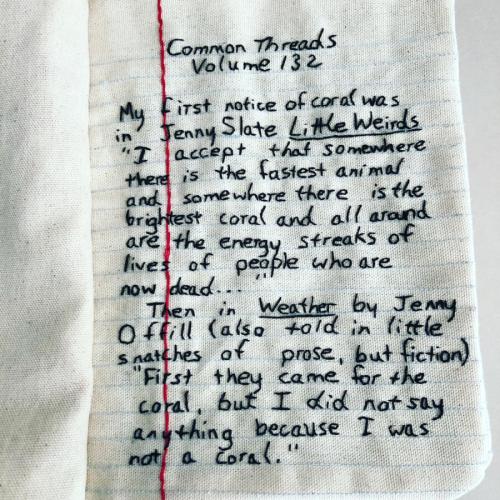 Common Threads
Volume 132
My first notice of coral was
in Jenny Slate Little Weirds
"I accept that somewhere
there is the fastest animal
and somewhere there is the
brightest coral and all around
are the energy streaks of
lives of people who are
now dead..."
Then in Weather by Jenny
Offill (also told in little
snatches of prose, but fiction)
"First they came for the
coral, but I did not say
anything because I was
not a coral."